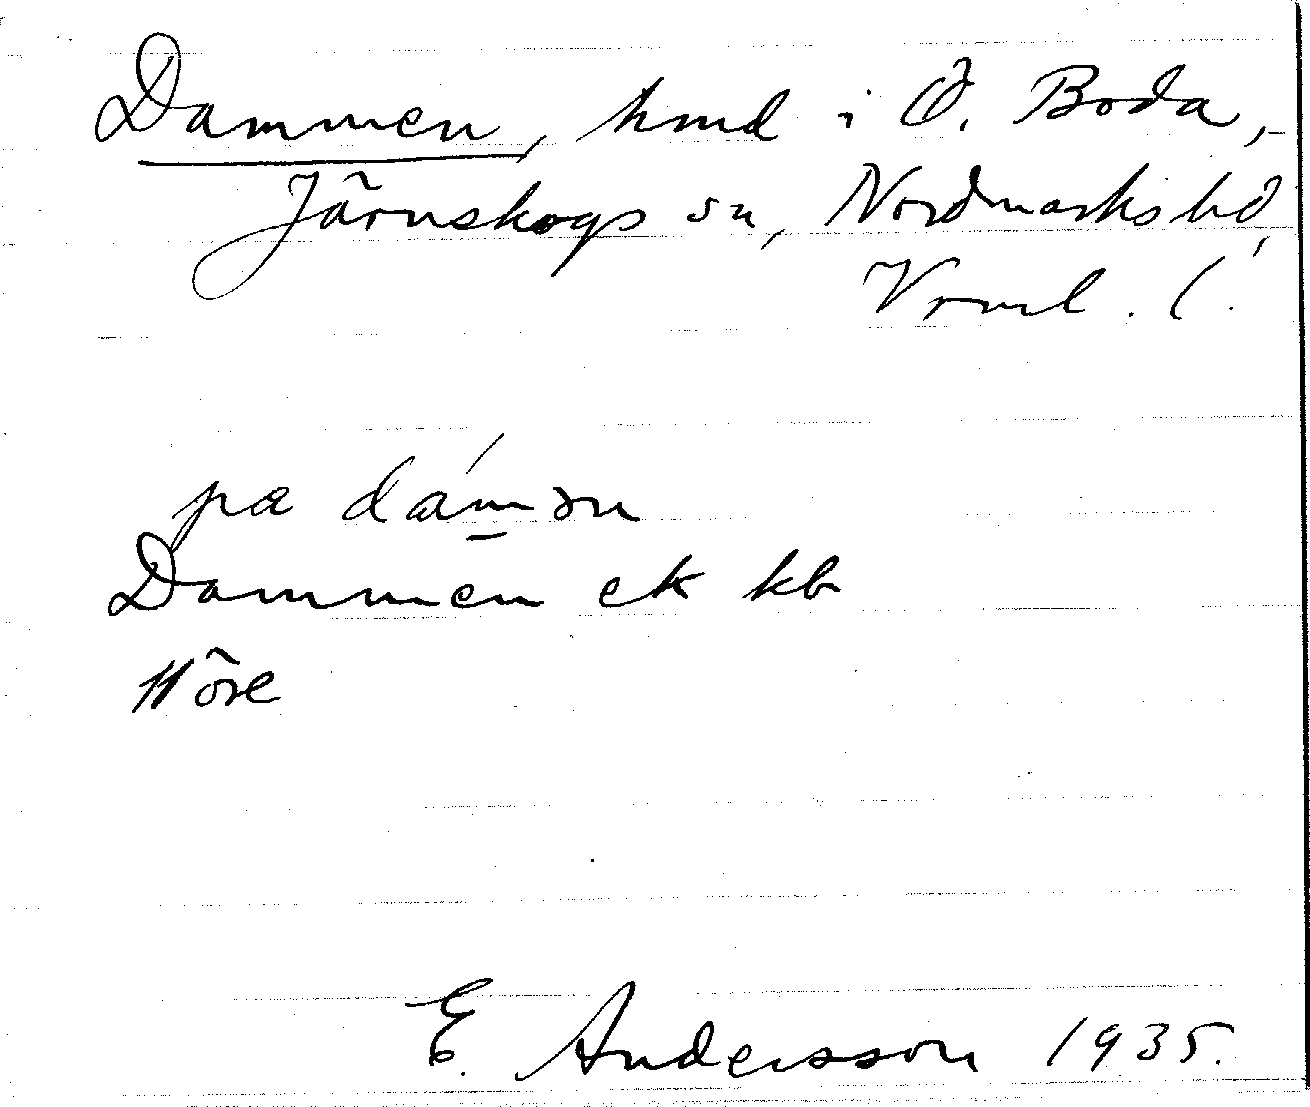 Dammen, hmd i Ö. Boda,
Järnskogs sn, Nordmarks hd,
Vrml. l.
pa dámən
Dammen ek kb
11 öre
E. Andersson 1935.